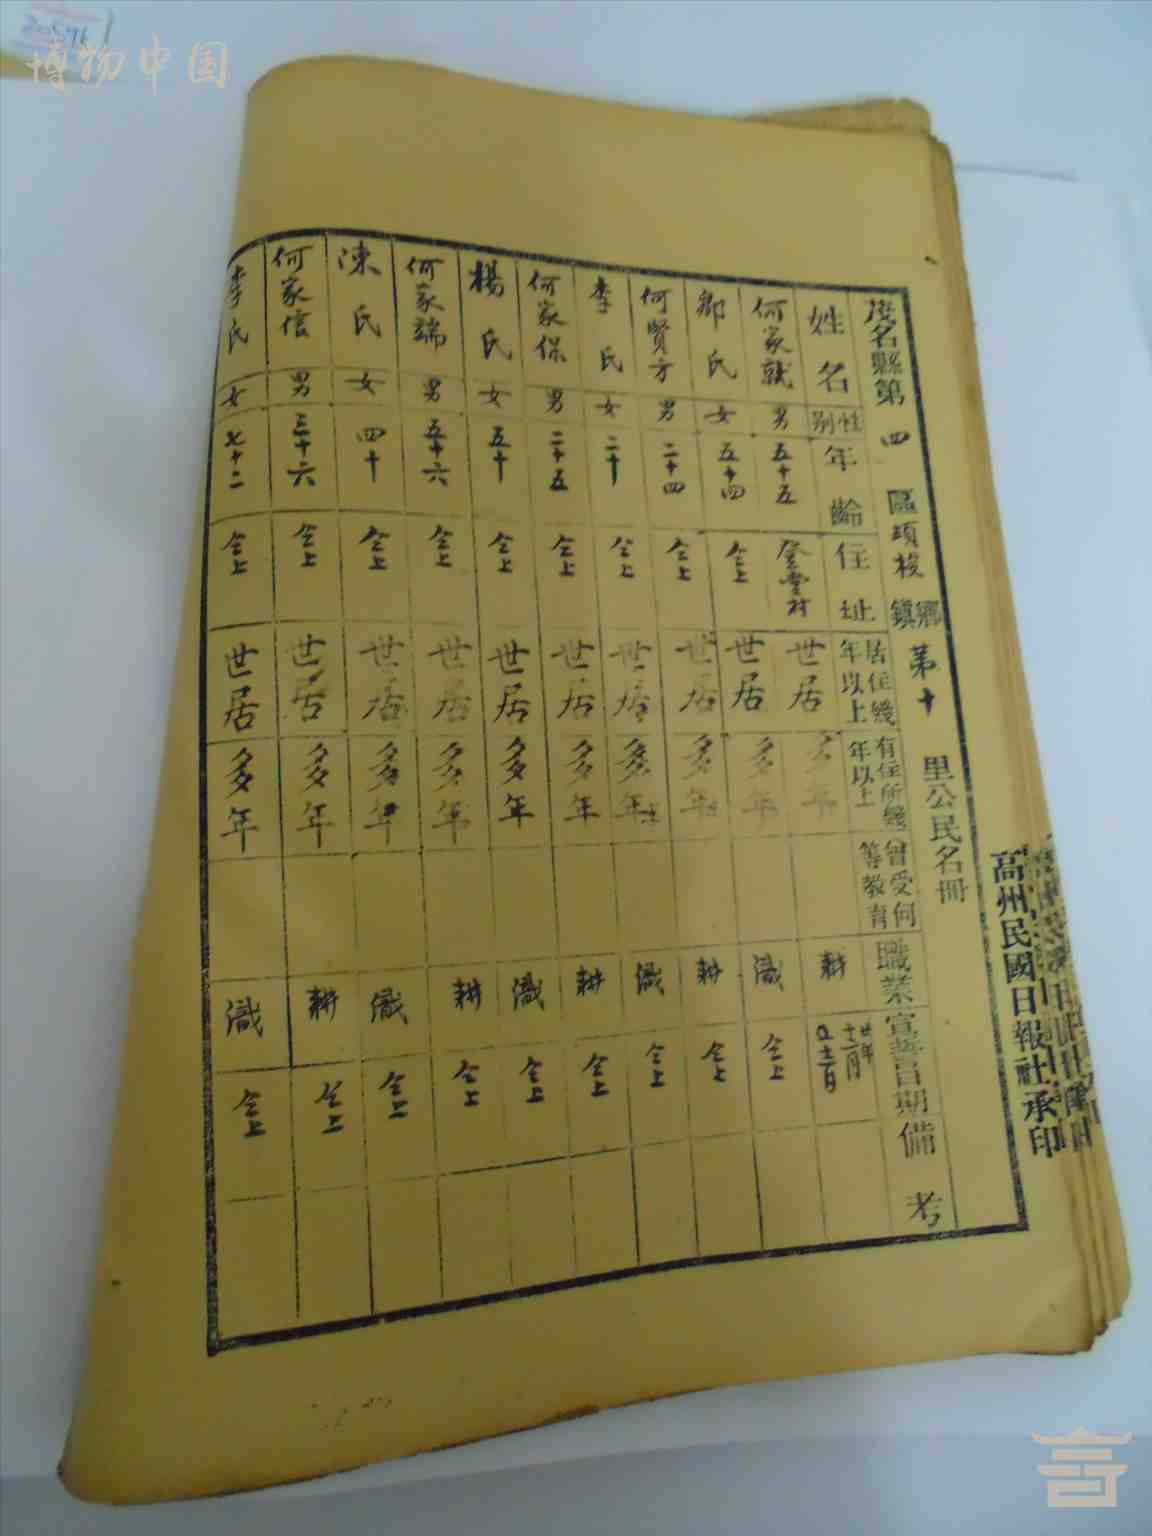 博物中国
高州民國日報社承印
茂名縣第四區項梭鄉鎮第十里公民名冊
姓名 性別 年齡 住址 居住幾年以上 有住所幾年以上 曾受何等教育 職業 宣誓日期 備考
何家就 男 五十五 世居 多年 耕
鄒氏 女 五十四 仝上 世居 多年 織 仝上
何賢方 男 二十四 仝上 世居 多年 耕 仝上
李氏 女 二十 仝上 世居 多年 織 仝上
何家保 男 二十五 仝上 世居 多年 耕 仝上
楊氏 女 五十 仝上 世居 多年 織 仝上
何家端 男 五十六 仝上 世居 多年 耕 仝上
陳氏 女 四十 仝上 世居 多年 織 仝上
何家信 男 三十六 仝上 世居 多年 耕 仝上
李氏 女 七十二 仝上 世居 多年 織 仝上